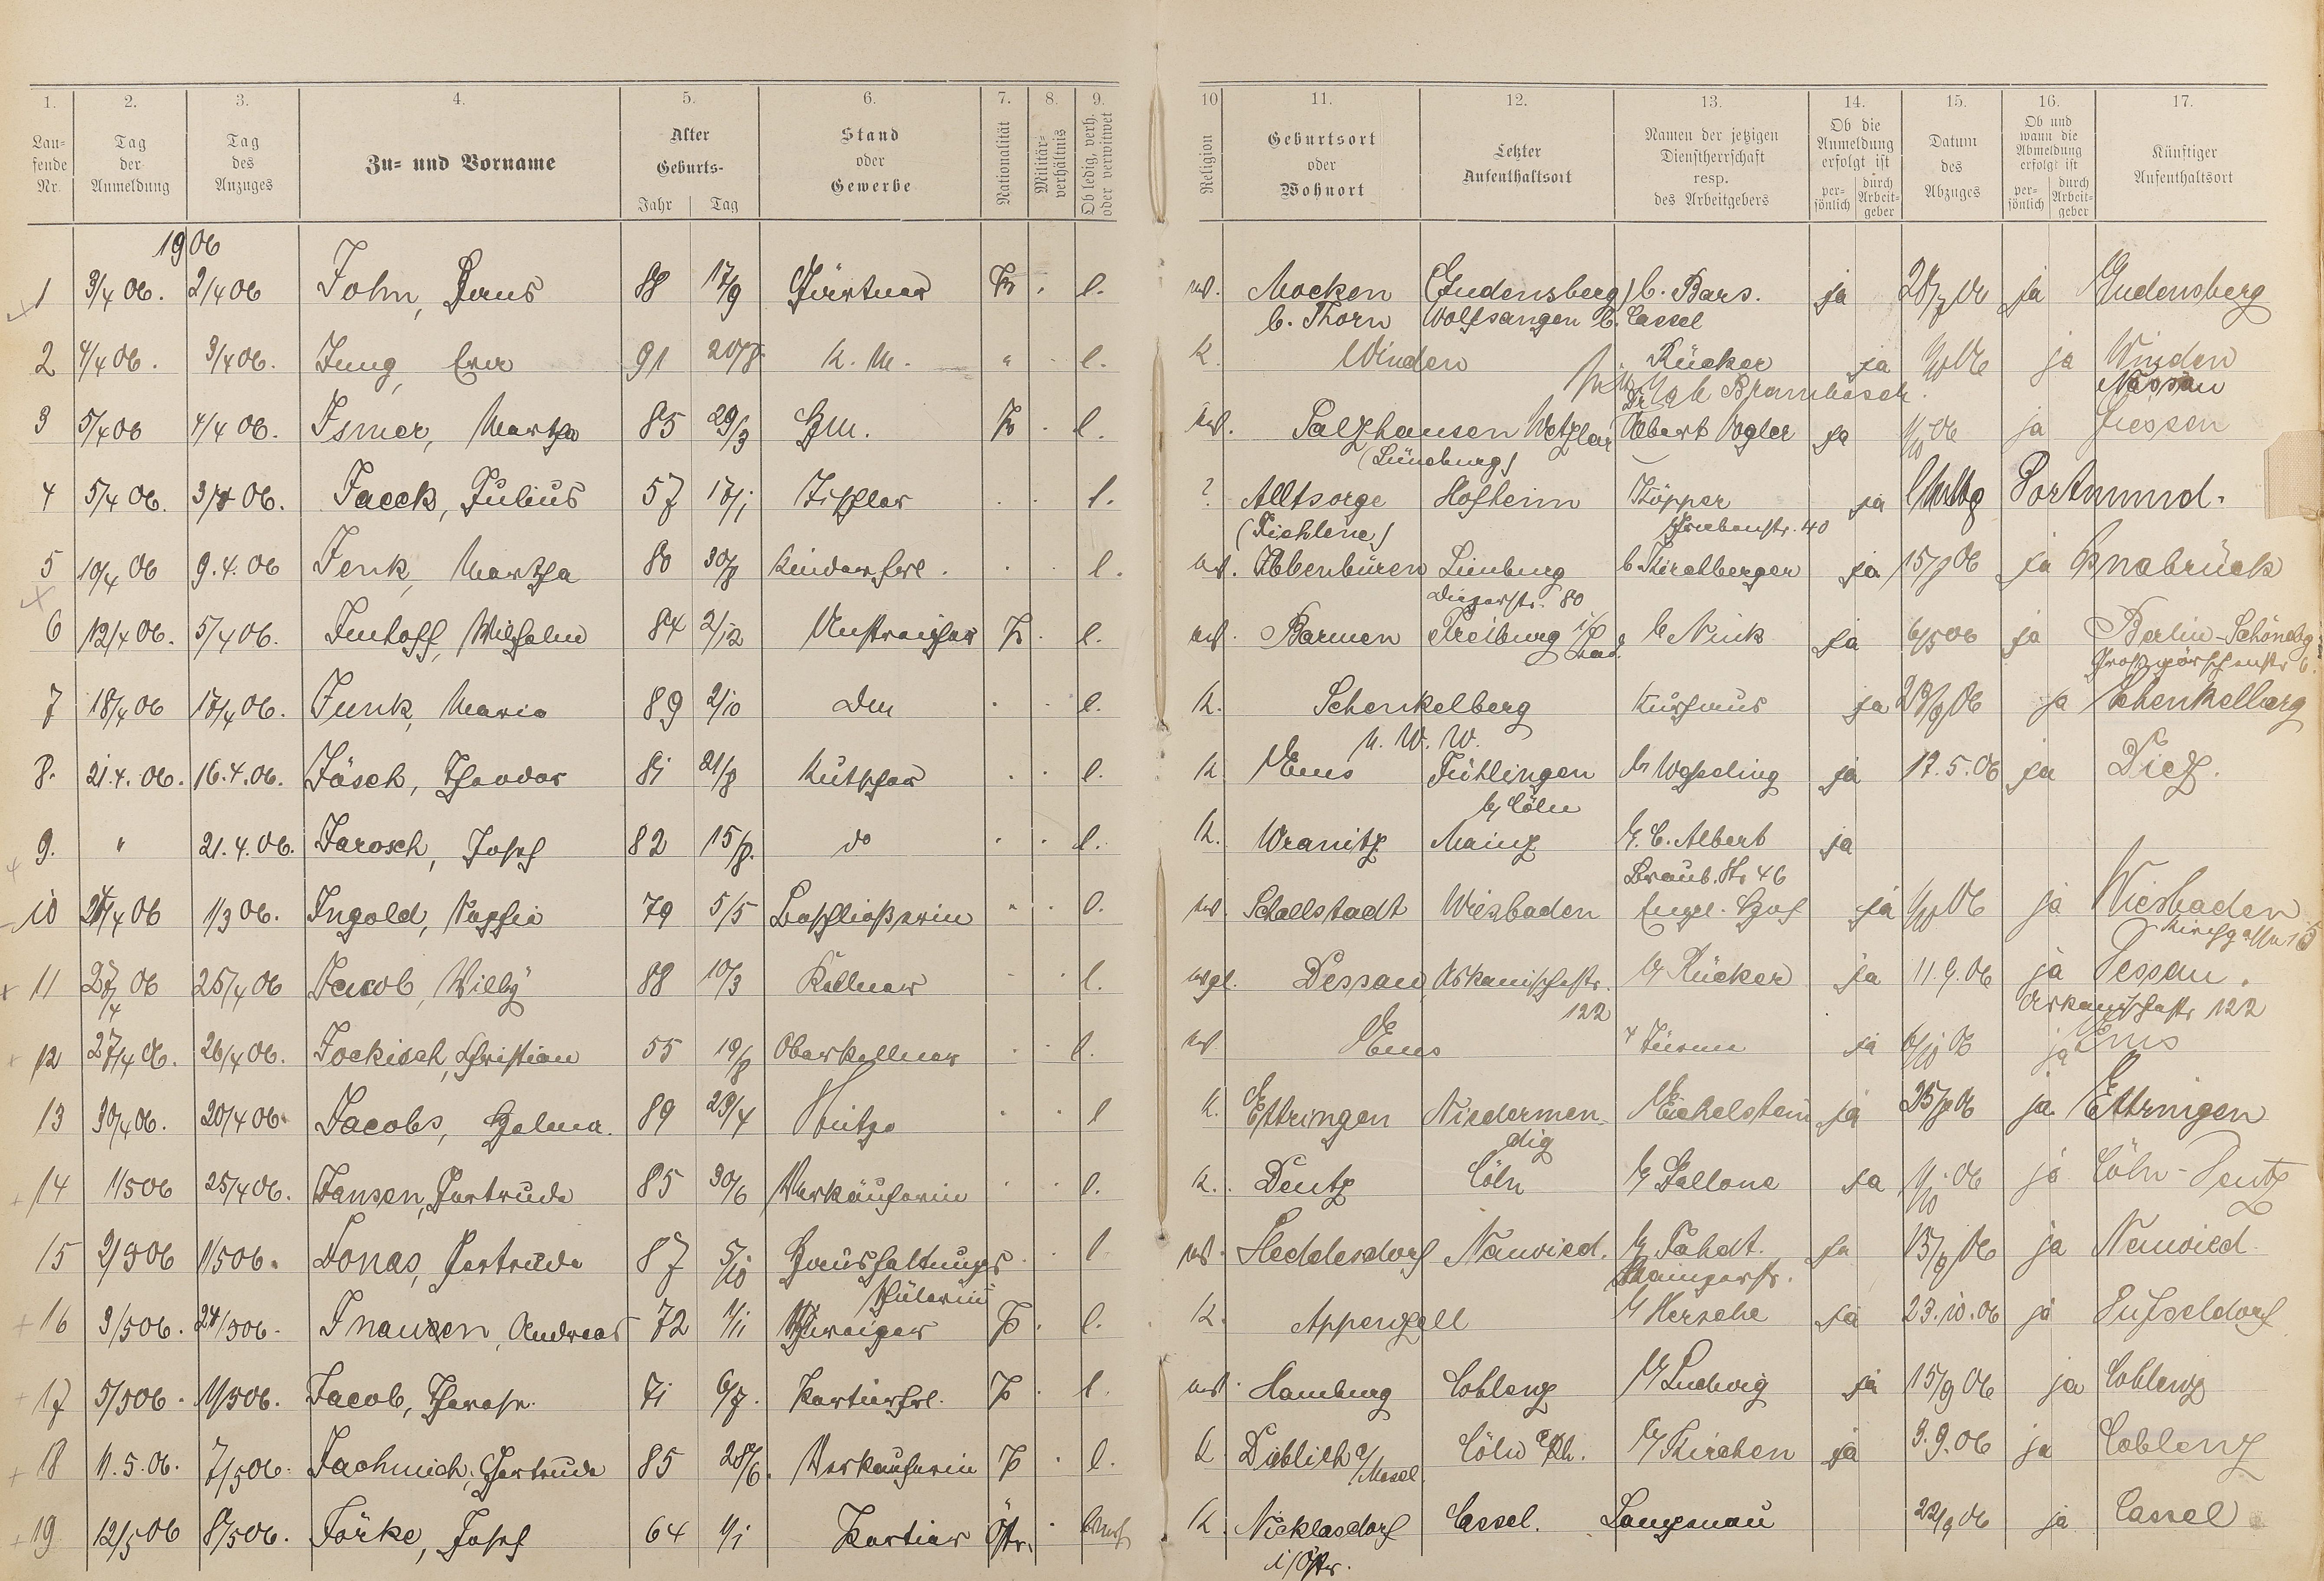 1. 2. 3. 4. 5. 6. 7. 8. 9. 10 11. 12. 13. 14. 15. 16. 17.
Lau-
fende
Nr.
Tag
der
Anmeldung
Tag
des
Anzuges
Zu- und Vorname
Alter
Geburts-
Jahr Tag
Stand
oder
Gewerbe
Nationalität
Militär-
verhältnis
Ob ledig, verh.
oder verwitwet
Religion
Geburtsort
oder
Wohnort
Letzter
Aufenthaltsort
Namen der jetzigen
Dienstherrschaft
resp.
des Arbeitgebers
Ob die
Anmeldung
erfolgt ist
per-
sönlich
durch
Arbeit-
geber
Datum
des
Abzuges
Ob und
wann die
Abmeldung
erfolgt ist
per-
sönlich
durch
Arbeit-
geber
Künftiger
Aufenthaltsort
1906
1 3/4 06. 2/4 06 John, 88 17/9 Gärtner Pr. l. ev. Mocken (Gudensberg) b. Bars. ja ja Gudensberg
b. Thorn Wolfsangen b. Cassel
2 4/4 06. 3/4 06. Jung, 91 20/8 K. M. " l. K. Winden Rücker ja ja Winden
Nassau
3 5/4 06 4/4 06. Ismer, Martha 85 29/3 Hm. Pr. l. ev. Salzhausen Wetzlar Albert Vogler ja ja Giessen
(Lüneburg)
4 5/4 06. 3/4 06. Jaeck, Julius 57 17/1 Tischler l. ? Alltsorge Hofheim Köpper ja Dortmund.
(Fichlene) Grabenstr. 40
5 10/4 06 9.4.06 Jenk, Martha 80 30/8 Kinderfrl. l. ev. Ibbenbüren Limburg b. Kirchberger ja 15/9 06 ja Osnabrück
Diezerstr. 80
6 12/4 06. 5/4 06. Imhoff, Wilhelm 84 2/12 Anstreicher Pr. l. ev. Barmen Freiburg i/ Bad. b. Nink ja 6/5 06 ja Berlin-Schönebg
Großgörschenstr 6.
7 18/4 06 17/4 06. Junk, Maria 89 2/10 Dm l. K. Schenkelberg Kurhaus ja ja Schenkelberg
U. W. W.
8. 21.4.06. 16.4.06. Jäsch, Theodor 81 21/8 Kutscher l. K Ems Fühlingen by Wesseling ja 17.5.06 ja Diez.
by Cöln
9. " 21.4.06. Jarosch, Josef 82 15/8. do l. K. Wranitz Mainz by C. Albert ja
Braub. Str 46
10 24/4 06 1/3 06. Ingold, Sophie 79 5/5 Beschließerin l. ev. Schallstadt Wiesbaden Engl. Hof ja ja Wiesbaden
Kirchgasse 15
11 27/4 06 25/4 06 Jacob, Willy 88 10/3 Kellner l. evgl. Dessau Askanischestr. by Rücker ja 11.9.06 ja Dessau.
122 Askanischestr 122
12 27/4 06. 26/4 06. Jockisch, Christian 55 19/8 Oberkellner l. ev. Ems ja ja Ems
13 30/4 06. 20/4 06. Jacobs, Helena 89 23/4 Stütze l K. Ettringen Niedermen- by Eichelstein ja 25/8 06 ja Ettringen
dig
14 1/5 06 25/4 06. Jansen, Gertrude 85 30/6 Verkäuferin l. K. Deutz Cöln by Gallone ja 1/10 06 ja Cöln-Deutz
15 2/5 06 1/5 06. Jonas, Gertrude 87 5/10 Haushaltungs l. ev. Heddesdorf Neuwied. by Pahdt. ja 15/9 06 ja Neuwied.
schülerin Mainzerstr.
16 3/5 06. 24/3 06. Inauen, Andreas 72 1/11 Schweizer Pr. l. K. Appenzell by Hersche ja 23.10.06 ja Düsseldorf
17 5/5 06. 1/5 06. Jacob, Therese. 71 6/7. Portierfrl. Pr. l. ev. Hamburg Coblenz by Ludwig ja 15/9 06 ja Coblenz
18 11.5.06. 7/5 06. Jachmich, Gertrude 85 28/6. Verkäuferin Pr. l. K Dieblich a/Mosel. Cöln a/Rh. by Kirchen ja 3.9.06 ja Coblenz
19 12/5 06 8/5 06. Jörke, Josef 64 1/1 Portier Östr. K. Nicklasdorf Cassel. Langenau 22/9 06 ja Cassel
i/Östr.